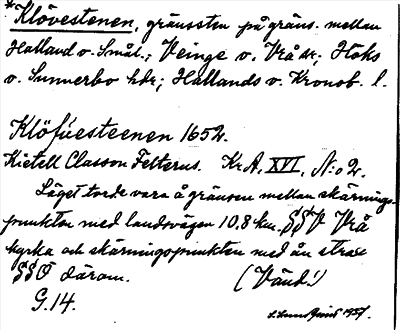 *Klövestenen, gränssten på gräns. mellan
Halland o. Smål.; Veinge o. Vrå sk; Höks
o. Sunnerbo hdr; Hallands o. Kronob. l.
Klöfüesteenen 1652.
Kietell Classon Felterus. Kr.A, XVI, N:o 2.
Läget torde vara å gränsen mellan skärnings-
punkten med landsvägen 10.8 km. SSV Vrå
kyrka och skärningspunkten med ån strax
SSÖ därom. (Vänd!)
G.14. 1957.